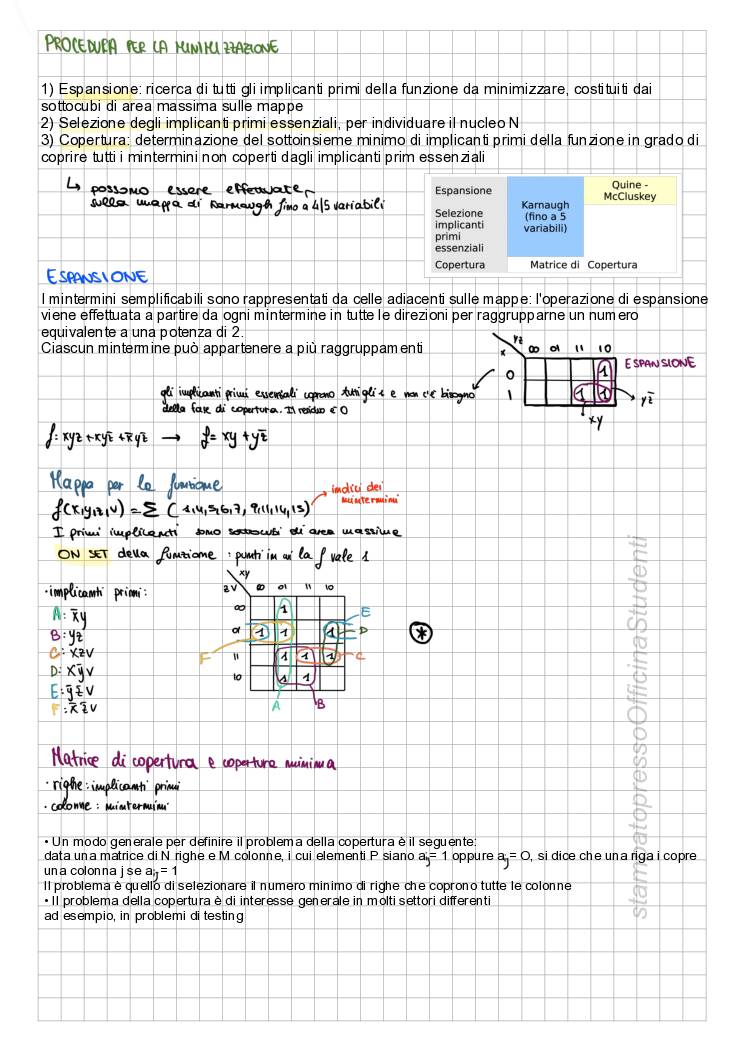 PROCEDURA PER LA MINIMIZZAZIONE
1) Espansione: ricerca di tutti gli implicanti primi della funzione da minimizzare, costituiti dai
sottocubi di area massima sulle mappe
2) Selezione degli implicanti primi essenziali, per individuare il nucleo N
3) Copertura: determinazione del sottoinsieme minimo di implicanti primi della funzione in grado di
coprire tutti i mintermini non coperti dagli implicanti prim essenziali
↳ possono essere effettuate
sulla mappa di Karnaugh fino a 4/5 variabili
Espansione
Selezione
implicanti
primi
essenziali
Copertura
Karnaugh
(fino a 5
variabili)
Quine -
McCluskey
Matrice di Copertura
ESPANSIONE
I mintermini semplificabili sono rappresentati da celle adiacenti sulle mappe: l'operazione di espansione
viene effettuata a partire da ogni mintermine in tutte le direzioni per raggrupparne un numero
equivalente a una potenza di 2.
Ciascun mintermine può appartenere a più raggruppamenti
yz
x 00 01 11 10
0 1
1 1 1
ESPANSIONE
yz̅
xy
gli implicanti primi essenziali coprono tutti gli 1 e non c'è bisogno
della fase di copertura. Il residuo è 0
f: xyz + xyz̅ + x̅yz̅ → f= xy + yz̅
Mappa per la funzione
f(x,y,z,v) = Σ ( 1,4,5,6,7, 9,11,14,15)
indici dei
mintermini
I primi implicanti sono sottocubi di area massima
ON SET della funzione : punti in cui la f vale 1
• implicanti primi:
A: x̅y
B: yz
C: xzv
D: xy̅v
E: y̅z̅v
F: x̅z̅v
xy
zv 00 01 11 10
00 1
01 1 1 1
11 1 1 1
10 1 1
E
D
F
C
A
B
*
Matrice di copertura e copertura minima
• righe: implicanti primi
• colonne : mintermini
• Un modo generale per definire il problema della copertura è il seguente:
data una matrice di N righe e M colonne, i cui elementi P siano aij= 1 oppure aij= O, si dice che una riga i copre
una colonna j se aij = 1
Il problema è quello di selezionare il numero minimo di righe che coprono tutte le colonne
• Il problema della copertura è di interesse generale in molti settori differenti
ad esempio, in problemi di testing
stampatopressoOfficinaStudenti